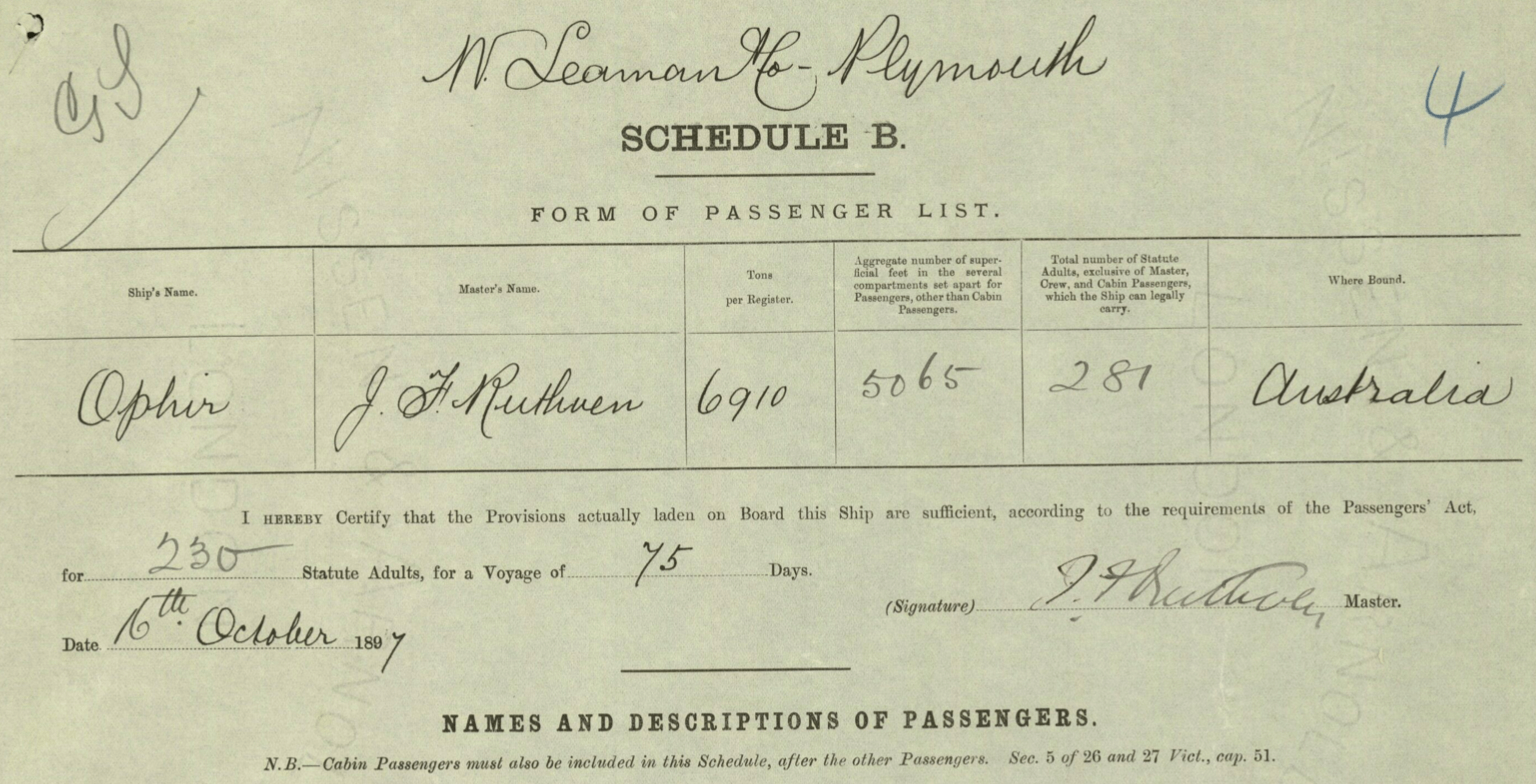 GS
N. Seaman & Co - Plymouth
4
SCHEDULE B.
FORM OF PASSENGER LIST.
Ship's Name.
Master's Name.
Tons
per Register.
Aggregate number of super-
ficial feet in the several
compartments set apart for
Passengers, other than Cabin
Passengers.
Total number of Statute
Adults, exclusive of Master,
Crew, and Cabin Passengers,
which the Ship can legally
carry.
Where Bound.
Ophir
J. F. Ruthven
6910
5065
281
Australia
I HEREBY Certify that the Provisions actually laden on Board this Ship are sufficient, according to the requirements of the Passengers' Act,
for 230 Statute Adults, for a Voyage of 75 Days.
(Signature) J. F. Ruthven Master.
Date 16th October 1897
NAMES AND DESCRIPTIONS OF PASSENGERS.
N.B.—Cabin Passengers must also be included in this Schedule, after the other Passengers. Sec. 5 of 26 and 27 Vict., cap. 51.